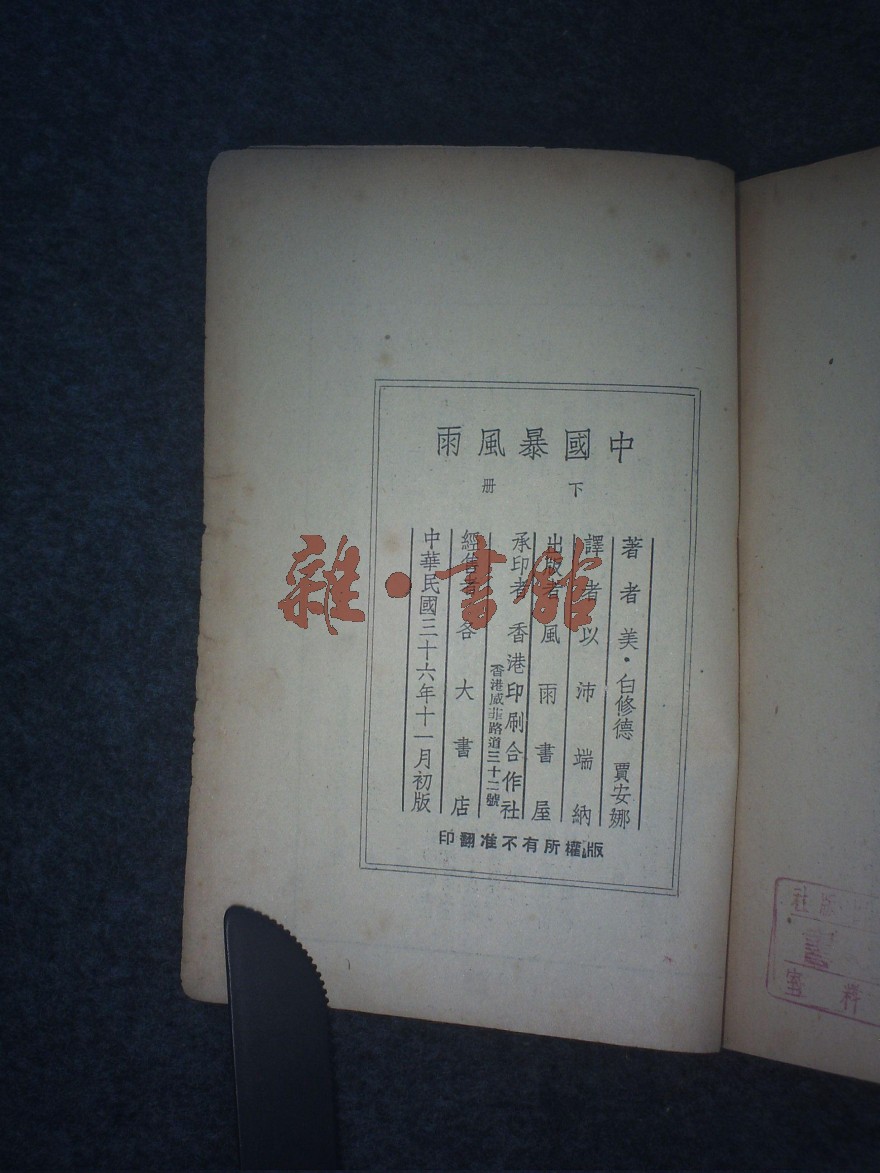 中國暴風雨
下册
著者 美·白修德 賈安娜
譯者 以沛端納
出版者 風雨書屋
承印者 香港印刷合作社
香港威菲路道三十二號
經售者 各大書店
中華民國三十六年十一月初版
版權所有不准翻印
雜·書館
社版
書
室料